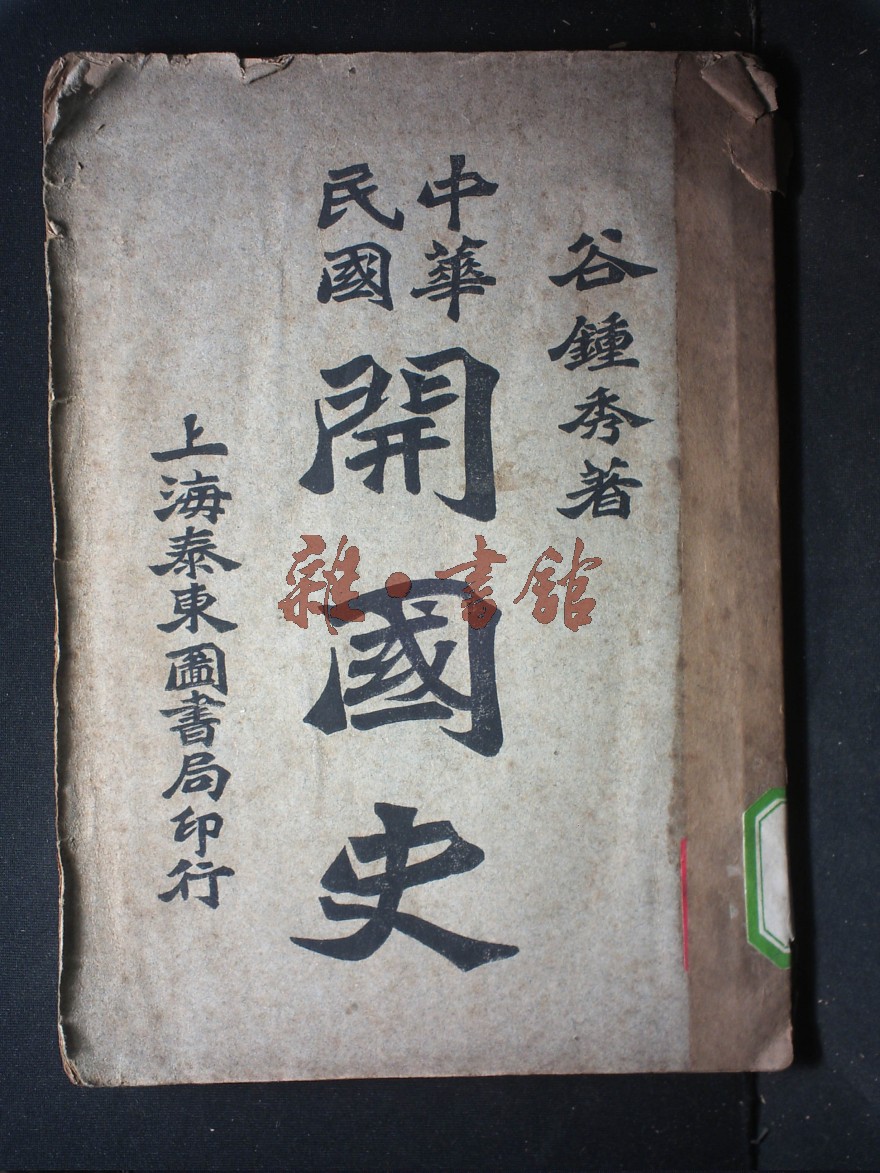 谷鍾秀著
中華
民國
開國史
上海泰東圖書局印行
雜·書館